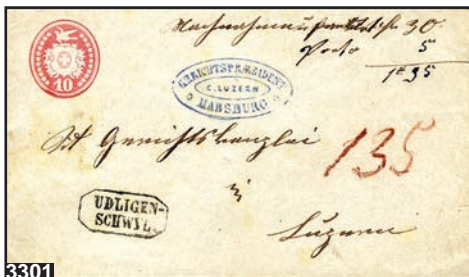 Nachnahme 30
Porto 5
10
GERICHTSPRÆSIDENT
C. LUZERN
HABSBURG
Gerichtskanzlei
135
in
UDLIGEN-
SCHWYL.
Luzern
3301